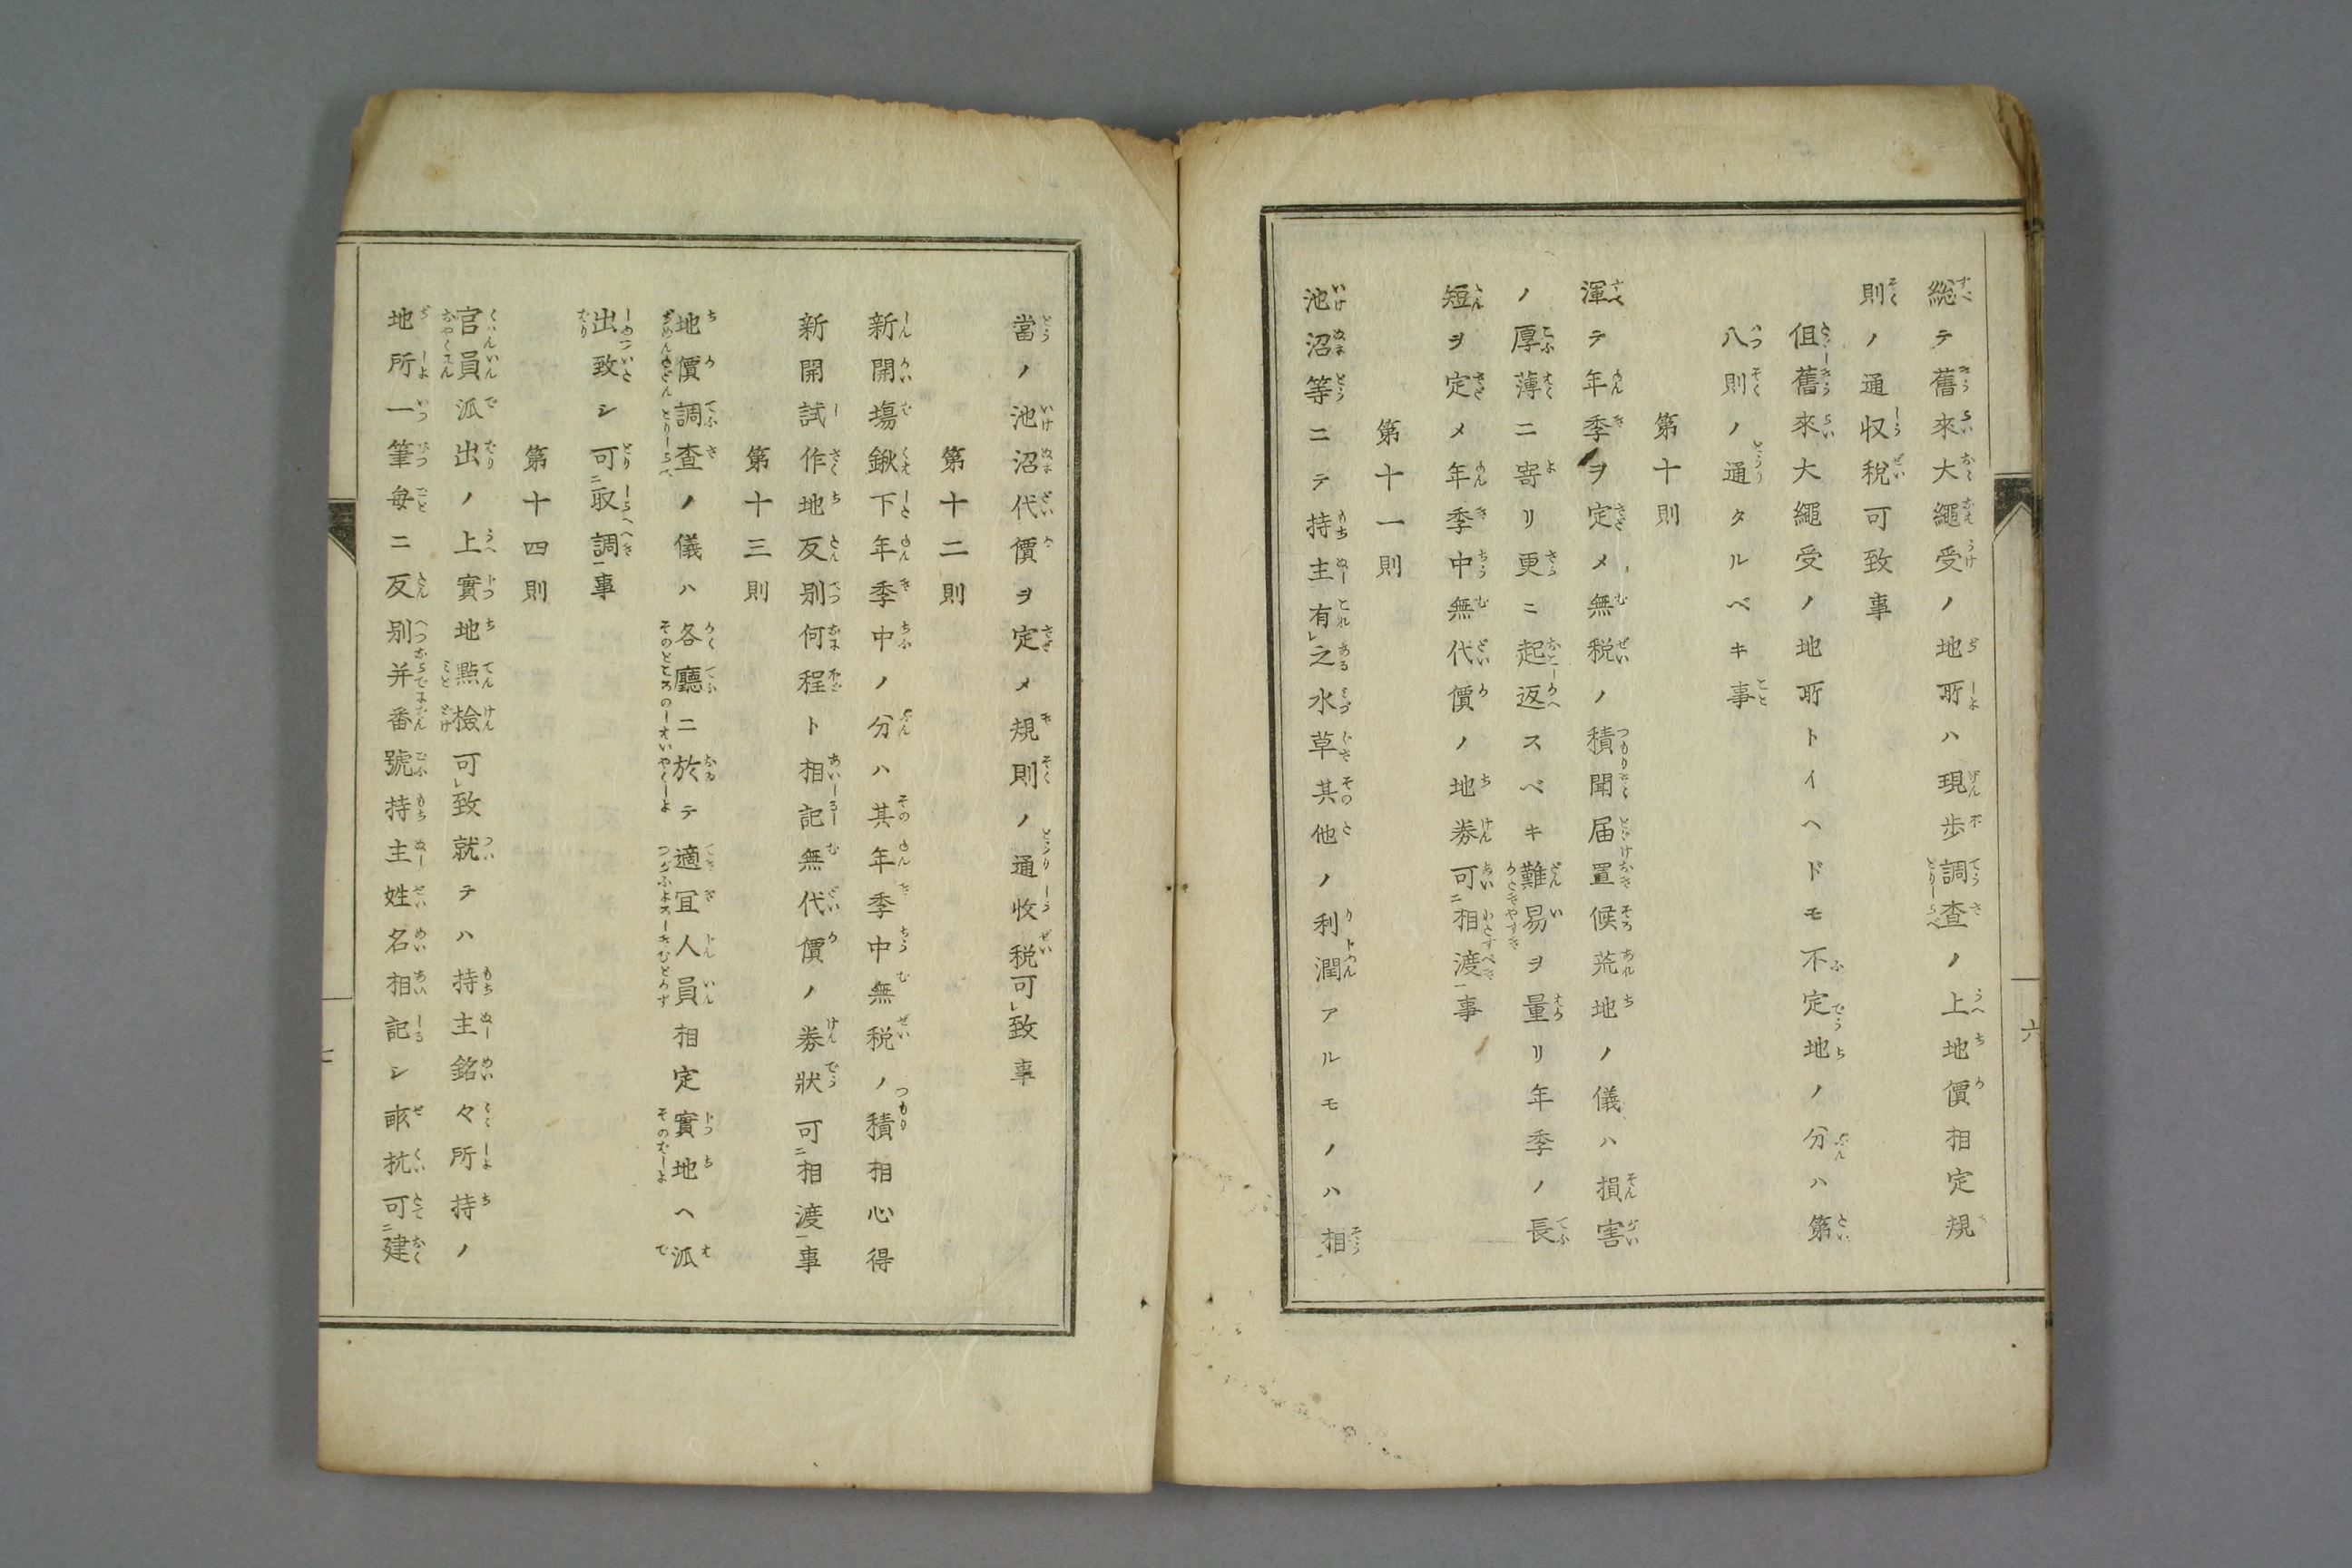 総テ舊來大繩受ノ地所ハ現歩調査ノ上地價相定規
則ノ通収税可致事
但舊來大繩受ノ地所トイヘドモ不定地ノ分ハ第
八則ノ通タルベキ事
第十則
渾テ年季ヲ定メ無税ノ積聞届置候荒地ノ儀ハ損害
ノ厚薄ニ寄リ更ニ起返スベキ難易ヲ量リ年季ノ長
短ヲ定メ年季中無代價ノ地券可㆓相渡㆒事
第十一則
池沼等ニテ持主有㆑之水草其他ノ利潤アルモノハ相
六
當ノ池沼代價ヲ定メ規則ノ通收税可㆑致事
第十二則
新開塲鍬下年季中ノ分ハ其年季中無税ノ積相心得
新開試作地反別何程ト相記無代價ノ券狀可㆓相渡㆒事
第十三則
地價調査ノ儀ハ各廳ニ於テ適宜人員相定實地ヘ派
出致シ可㆓取調㆒事
第十四則
官員派出ノ上實地點檢可㆑致就テハ持主銘々所持ノ
地所一筆毎ニ反別并番號持主姓名相記シ畝杭可㆓建